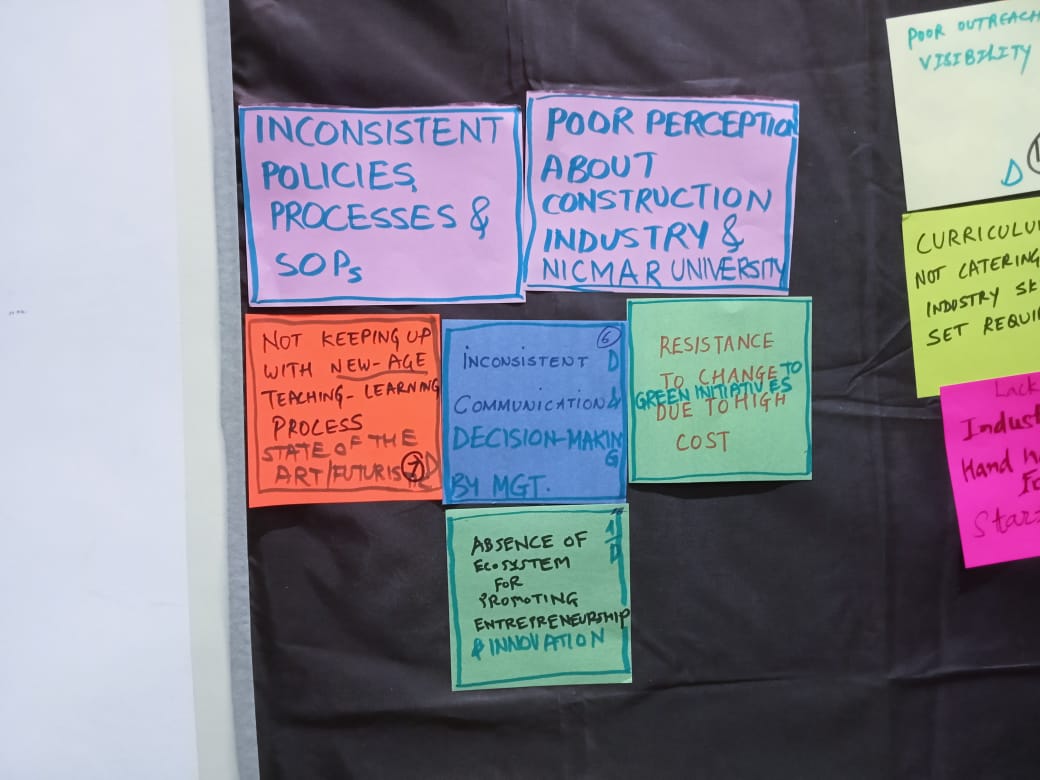 INCONSISTENT
POLICIES,
PROCESSES &
SOPs
POOR PERCEPTION
ABOUT
CONSTRUCTION
INDUSTRY &
NICMAR UNIVERSITY
NOT KEEPING UP
WITH NEW-AGE
TEACHING-LEARNING
PROCESS
STATE OF THE
ART/FUTURIS
7 D
6
INCONSISTENT D
COMMUNICATION &
DECISION-MAKING
BY MGT.
RESISTANCE
TO CHANGE TO
GREEN INITIATIVES
DUE TO HIGH
COST
ABSENCE OF
ECOSYSTEM
FOR
PROMOTING
ENTREPRENEURSHIP
& INNOVATION
POOR OUTREACH
VISIBILITY
D
CURRICULU
NOT CATERING
INDUSTRY SK
SET REQUI
Lack
Indust
Hand h
Fo
Star